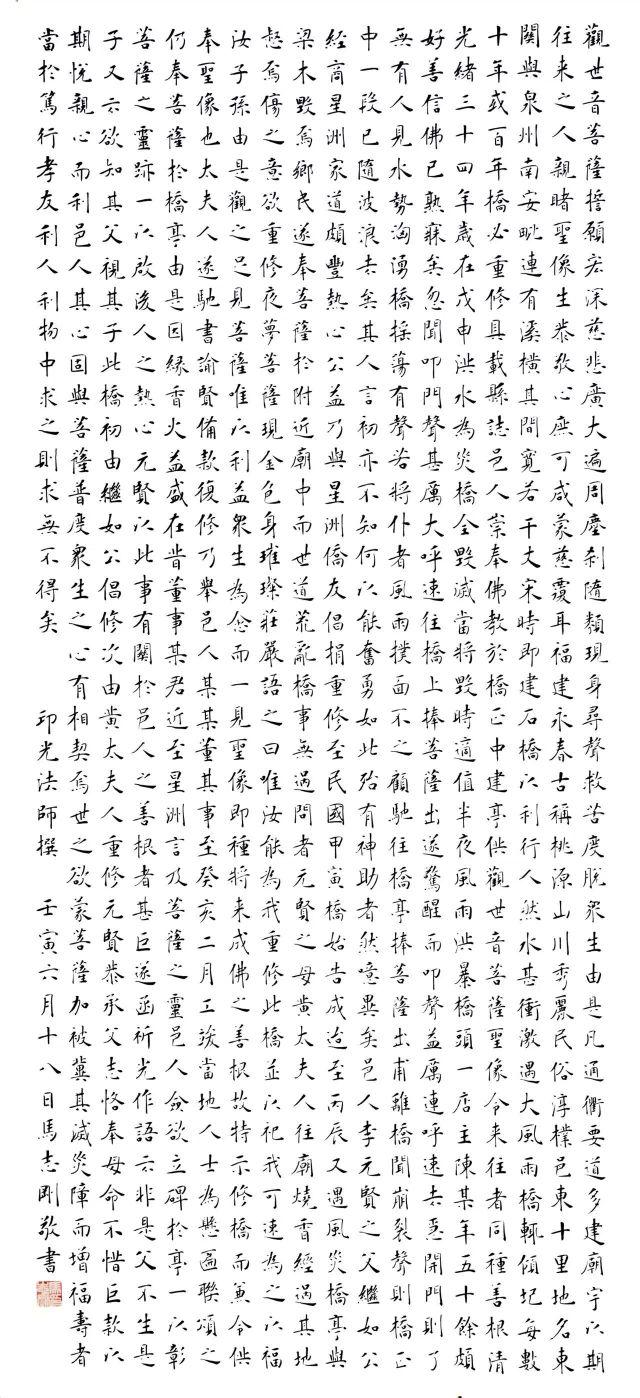 觀世音菩薩誓願宏深慈悲廣大遍周塵剎隨類現身尋聲救苦度脫眾生由是凡通衢要道多建廟宇以期
往來之人親睹聖像生恭敬心庶可咸蒙慈覆耳福建永春古稱桃源山川秀麗民俗淳樸邑東十里地名東
關與泉州南安毗連有溪橫其間寬若干丈宋時即建石橋以利行人然水甚衝激遇大風雨橋輒傾圮每數
十年或百年橋必重修具載縣誌邑人崇奉佛教於橋正中建亭供觀世音菩薩聖像令來往者同種善根清
光緒三十四年歲在戊申洪水為災橋全毀滅當將毀時適值半夜風雨洪暴橋頭一店主陳某年五十餘頗
好善信佛已熟寐矣忽聞叩門聲甚厲大呼速往橋上捧菩薩出遂驚醒而叩聲益厲連呼速去急開門則了
無有人見水勢洶湧橋搖蕩有聲若將仆者風雨撲面不之顧馳往橋亭捧菩薩出甫離橋聞崩裂聲則橋正
中一段已隨波浪去矣其人言初亦不知何以能奮勇如此殆有神助者然噫異矣邑人李元賢之父繼如公
經商星洲家道頗豐熱心公益乃與星洲僑友倡捐重修至民國甲寅橋始告成迨至丙辰又遇風災橋亭與
梁木毀焉鄉民遂奉菩薩於附近廟中而世道荒亂橋事無過問者元賢之母黄太夫人往廟燒香經過其地
惄焉傷之意欲重修夜夢菩薩現金色身璀璨莊嚴語之曰唯汝能為我重修此橋並以祀我可速為之以福
汝子孫由是觀之足見菩薩唯以利益眾生為念而一見聖像即種將來成佛之善根故特示修橋而兼令供
奉聖像也太夫人遂馳書諭賢備款復修乃舉邑人某某董其事至癸亥二月工竣當地人士為懸匾聯頌之
何奉菩薩於橋亭由是因緣香火益盛在昔董事某君近至星洲言及菩薩之靈邑人僉欲立碑於亭一以彰
菩薩之靈跡一以啟後人之熱心元賢以此事有關於邑人之善根者甚巨遂函祈光作語云非是父不生是
子又云欲知其父視其子此橋初由繼如公倡修次由黄太夫人重修元賢恭承父志恪奉母命不惜巨款以
期悅親心而利邑人其心固與菩薩普度眾生之心有相契焉世之欲蒙菩薩加被冀其滅災障而增福壽者
當於篤行孝友利人利物中求之則求無不得矣 印光法師撰 壬寅六月十八日馬志剛敬書